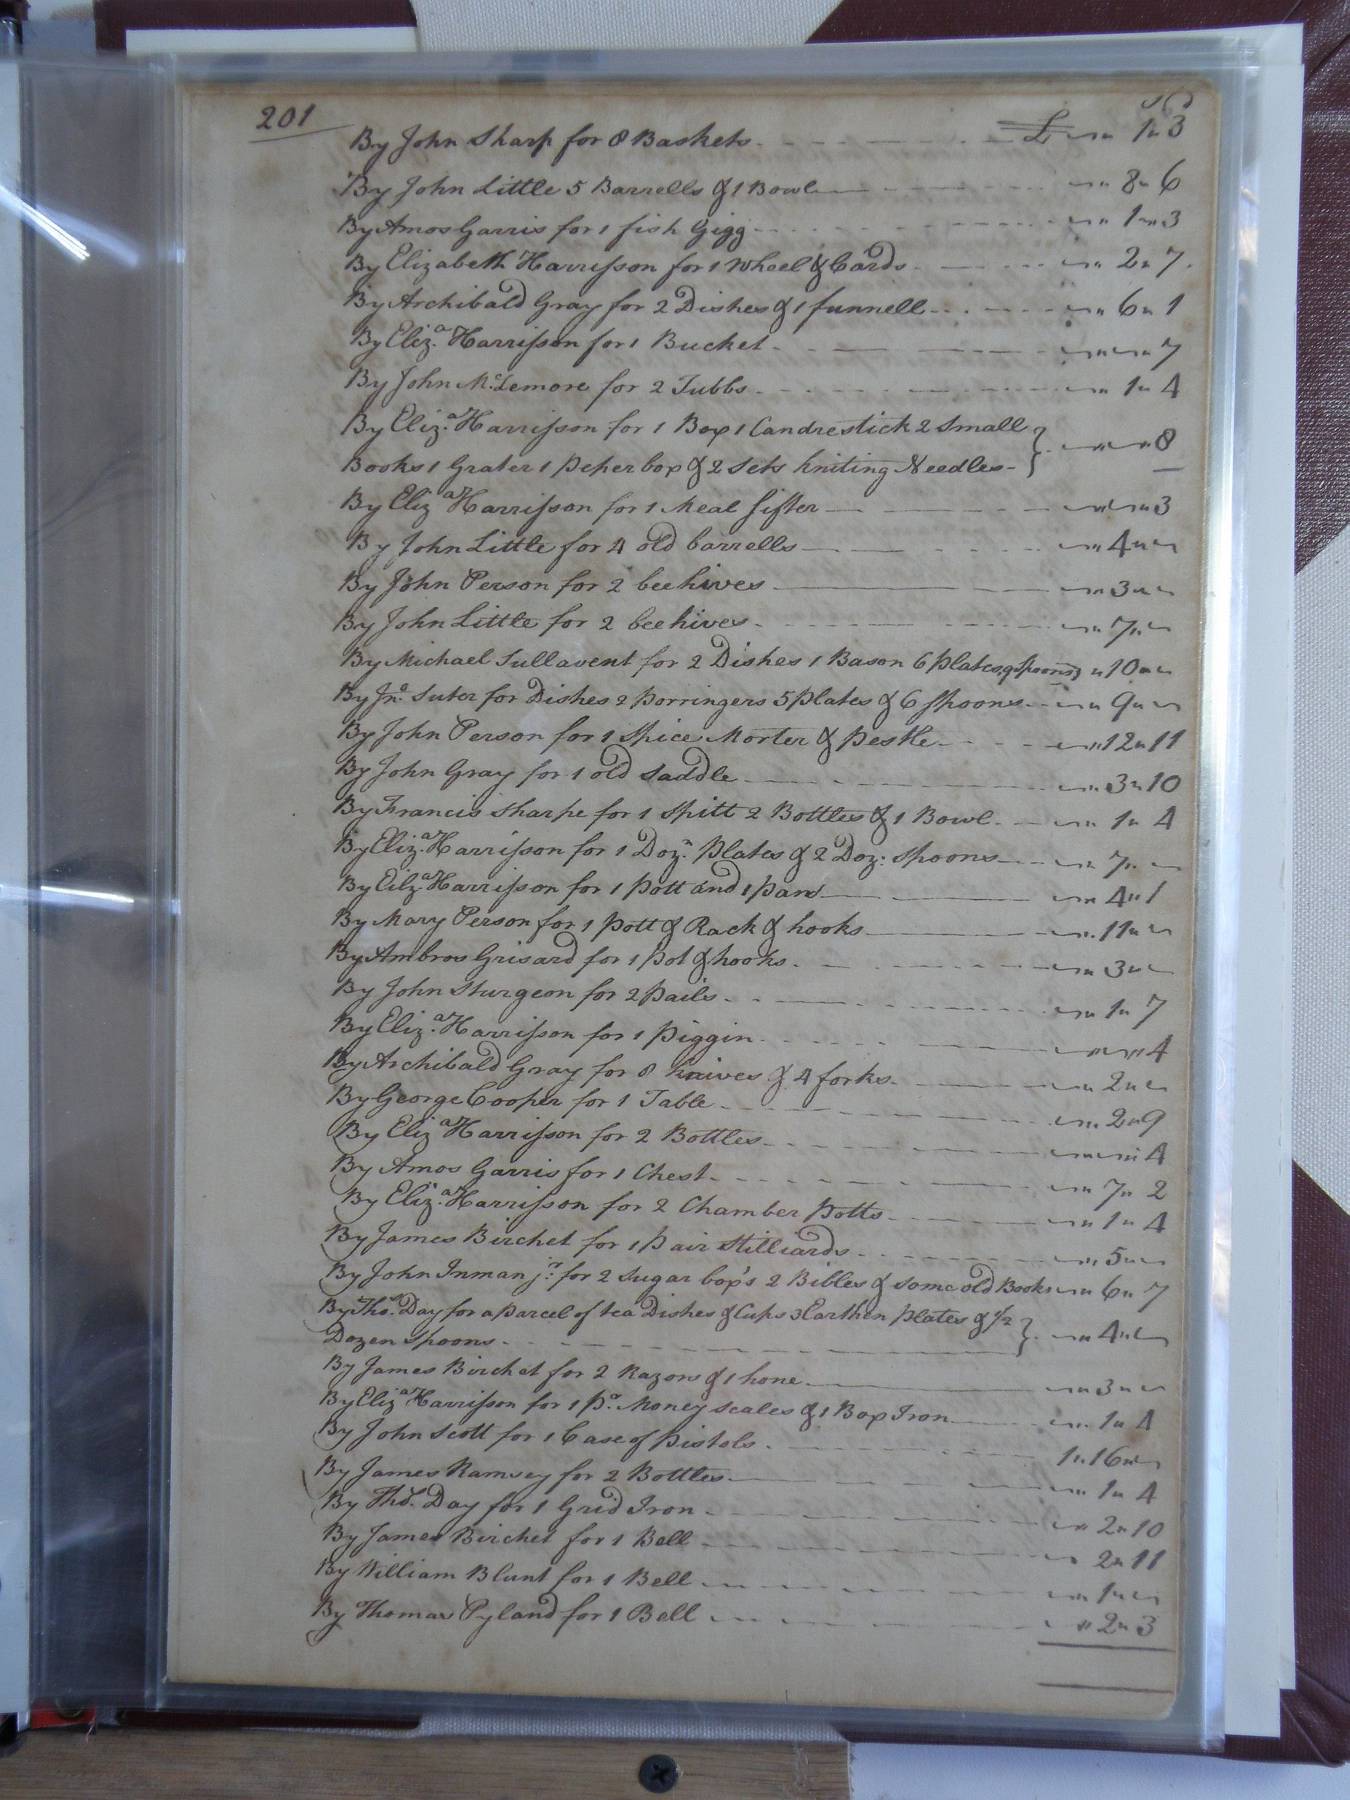 201
By John Sharp for 8 Baskets - - - - £ ~ " 1 " 3
By John Little 5 Barrells & 1 Bowl ~ " 8 " 6
By Amos Garris for 1 fish Gigg ~ " 1 " 3
By Elizabeth Harrisson for 1 Wheel & Cards ~ " 2 " 7
By Archibald Gray for 2 Dishes & 1 funnell ~ " 6 " 1
By Eliza. Harrisson for 1 Bucket ~ " ~ " 7
By John McLemore for 2 Tubbs ~ " 1 " 4
By Eliza. Harrisson for 1 Box 1 Candrestick 2 Small
Books 1 Grater 1 Peper box & 2 Sets kniting Needles } ~ " ~ " 8
By Eliza Harrisson for 1 Meal sifter ~ " ~ " 3
By John Little for 4 old barrells ~ " 4 " ~
By John Person for 2 beehives ~ " 3 " ~
By John Little for 2 beehives ~ " 7 " ~
By Michael Sullavent for 2 Dishes 1 Bason 6 Plates 9 Spoons " 10 " ~
By Jno. Suter for Dishes 2 Porringers 5 Plates & 6 Spoons ~ " 9 " ~
By John Person for 1 Spice Morter & Pestle ~ " 12 " 11
By John Gray for 1 old Saddle ~ " 3 " 10
By Francis Sharpe for 1 Spitt 2 Bottles & 1 Bowl ~ " 1 " 4
By Eliza. Harrisson for 1 Dozn. Plates & 2 Doz: Spoons ~ " 7 " ~
By Eilza Harrisson for 1 Pott and 1 Pan ~ " 4 " 1
By Mary Person for 1 Pott & Rack & hooks ~ " 11 " ~
By Ambros Grisard for 1 Pot & hooks ~ " 3 " ~
By John Sturgeon for 2 Pails ~ " 1 " 7
By Eliza. Harrisson for 1 Piggin ~ " " 4
By Archibald Gray for 8 knives & 4 forks ~ " 2 " ~
By George Cooper for 1 Table ~ " 2 " 9
By Eliza Harrisson for 2 Bottles ~ " ~ " 4
By Amos Garris for 1 Chest ~ " 7 " 2
By Eliza. Harrisson for 2 Chamber Potts ~ " 1 " 4
By James Birchet for 1 Pair Stilliards ~ " 5 " ~
By John Inman jr. for 2 Sugar box's 2 Bibles & some old Books ~ " 6 " 7
By Thos. Day for a Parcel of tea Dishes & Cups 3 Earthen Plates & 1/2
Dozen Spoons } ~ " 4 " ~
By James Birchet for 2 Razors & 1 hone ~ " 3 " ~
By Eliza Harrisson for 1 Pr. Money Scales & 1 Box Iron ~ " 1 " 4
By John Scott for 1 Case of Pistols 1 " 16 " ~
By James Ramsey for 2 Bottles ~ " 1 " 4
By Thos. Day for 1 Grid Iron ~ " 2 " 10
By James Birchet for 1 Bell ~ 2 " 11
By William Blunt for 1 Bell ~ " 1 " ~
By Thomas Pyland for 1 Bell ~ " 2 " 3